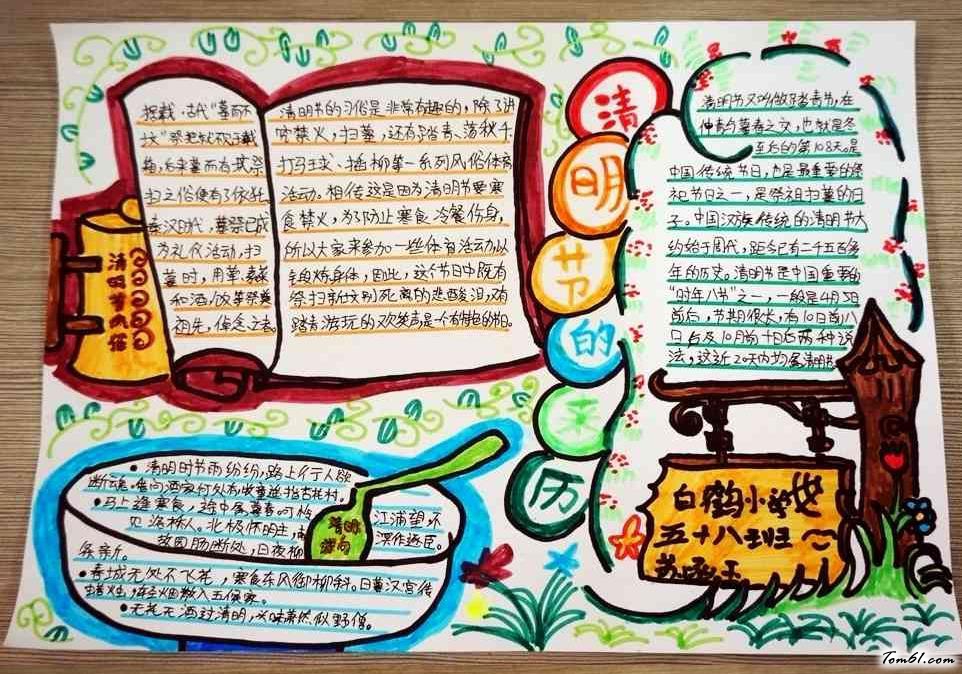 清明节的来历
清明节又叫做踏青节,在
仲春与暮春之交,也就是冬
至后的第108天。是
中国传统节日,也是最重要的祭
祀节日之一,是祭祖扫墓的日
子。中国汉族传统的清明节大
约始于周代,距今已有二千五百多
年的历史。清明节是中国重要的
“时年八节”之一,一般是4月5日
前后,节期很长,有10日前八
日后及10日前十日后两种说
法,这近20天内均属清明节。
清明节的习俗是非常有趣的,除了讲
究禁火,扫墓,还有踏青、荡秋千、
打马球、插柳等一系列风俗体育
活动。相传这是因为清明节要寒
食禁火,为了防止寒食冷餐伤身,
所以大家来参加一些体育活动以
锻炼身体,因此,这个节日中既有
祭扫新坟别死离的悲酸泪,又有
踏青游玩的欢笑声是一个有特色的节日。
据载,古代“墓而不
坟”
扫之俗便有了依托。
秦汉时代,墓祭已成
为礼仪活动,扫
墓时,
和酒/饭等祭奠
祖先,
清明节风俗
清明时节雨纷纷,路上行人欲
断魂。借问酒家何处有牧童遥指杏花村。
马上逢寒食,途中属暮春。可怜
江浦望,不
见洛桥人。北极怀明主,南
溟作逐臣。
故园肠断处,日夜柳
条新。
清明诗句
春城无处不飞花,寒食东风御柳斜。日暮汉宫传
蜡烛,轻烟散入五侯家。
无花无酒过清明,兴味萧然似野僧。
白鹤小学
五十八班
Tom61.com